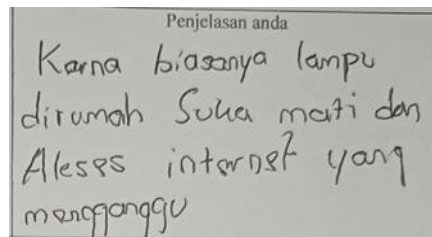 Penjelasan anda
Karna biasanya lampu
dirumah Suka mati dan
Akses internet yang
mengganggu